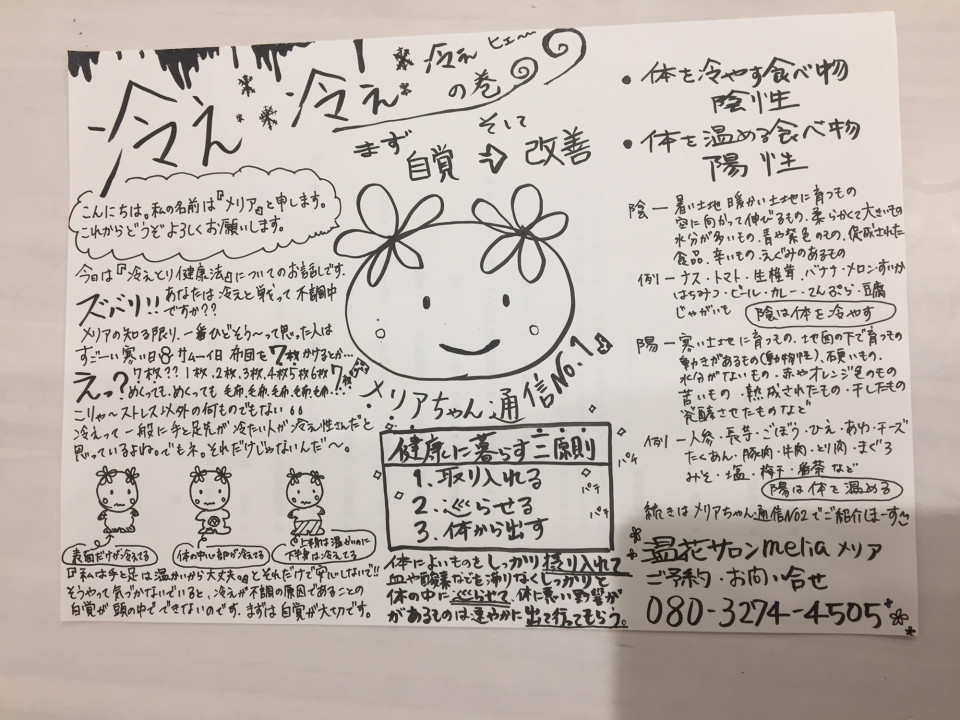 冷え 冷え 冷え ヒェ〜
の巻
まず そして
自覚 ⇨ 改善
こんにちは。私の名前は『メリア』と申します。
これからどうぞよろしくお願いします。
今日は『冷えとり健康法』についてのお話しです.
ズバリ!! あなたは冷えと戦って不調中
ですか??
メリアの知る限り、一番ひどそう〜って思った人は
すごーい寒い日 サムーイ日 布団を7枚かけるとか…
えっ? 7枚?? 1枚、2枚、3枚、4枚5枚6枚7枚
めくっても、めくっても 毛布、毛布、毛布、毛布…
こりゃ〜ストレス以外の何ものでもない
冷えって一般に手と足先が冷たい人が冷え性さんだと
思っているよね。でもネ。それだけじゃないんだ〜。
表面だけが冷えてる
体の中心部が冷えてる
上半身は温かいのに
下半身は冷えてる
『私は手と足は温かいから大丈夫。』とそれだけで安心しないで!!
そうやって気づかないでいると、冷えが不調の原因であることの
自覚が頭の中でできないのです. まずは自覚が大切です。
メリアちゃん通信No.1
健康に暮らす三原則
1. 取り入れる
2. 巡らせる
3. 体から出す
パチ
パチ
パチ
体によいものをしっかり採り入れて
血や酸素などを滞りなくしっかりと
体の中に巡らせて、体に悪い影響が
があるものは速やかに出て行ってもらう。
• 体を冷やす食べ物
陰性
• 体を温める食べ物
陽性
陰ー暑い土地 暖かい土地に育つもの
空に向かって伸びるもの、柔らかくて大きいもの
水分が多いもの、青や紫色のもの、促成された
食品、辛いもの、えぐみのあるもの
例ーナス・トマト・生椎茸・バナナ・メロン・すいか
はちみつ・ビール・カレー・てんぷら・豆腐
じゃがいも 陰は体を冷やす
陽ー寒い土地に育つもの、地面の下で育つもの
動きがあるもの(動物性)、硬いもの、
水分がないもの・赤やオレンジ色のもの
苦いもの・熟成されたもの・干したもの
発酵させたものなど
例ー人参・長芋・ごぼう・ひえ・あわ・チーズ
たくあん・豚肉・牛肉・とり肉・まぐろ
みそ・塩・梅干・番茶など
陽は体を温める
続きはメリアちゃん通信No2でご紹介しまーす
花サロンmelia メリア
ご予約・お問い合せ
080-3274-4505